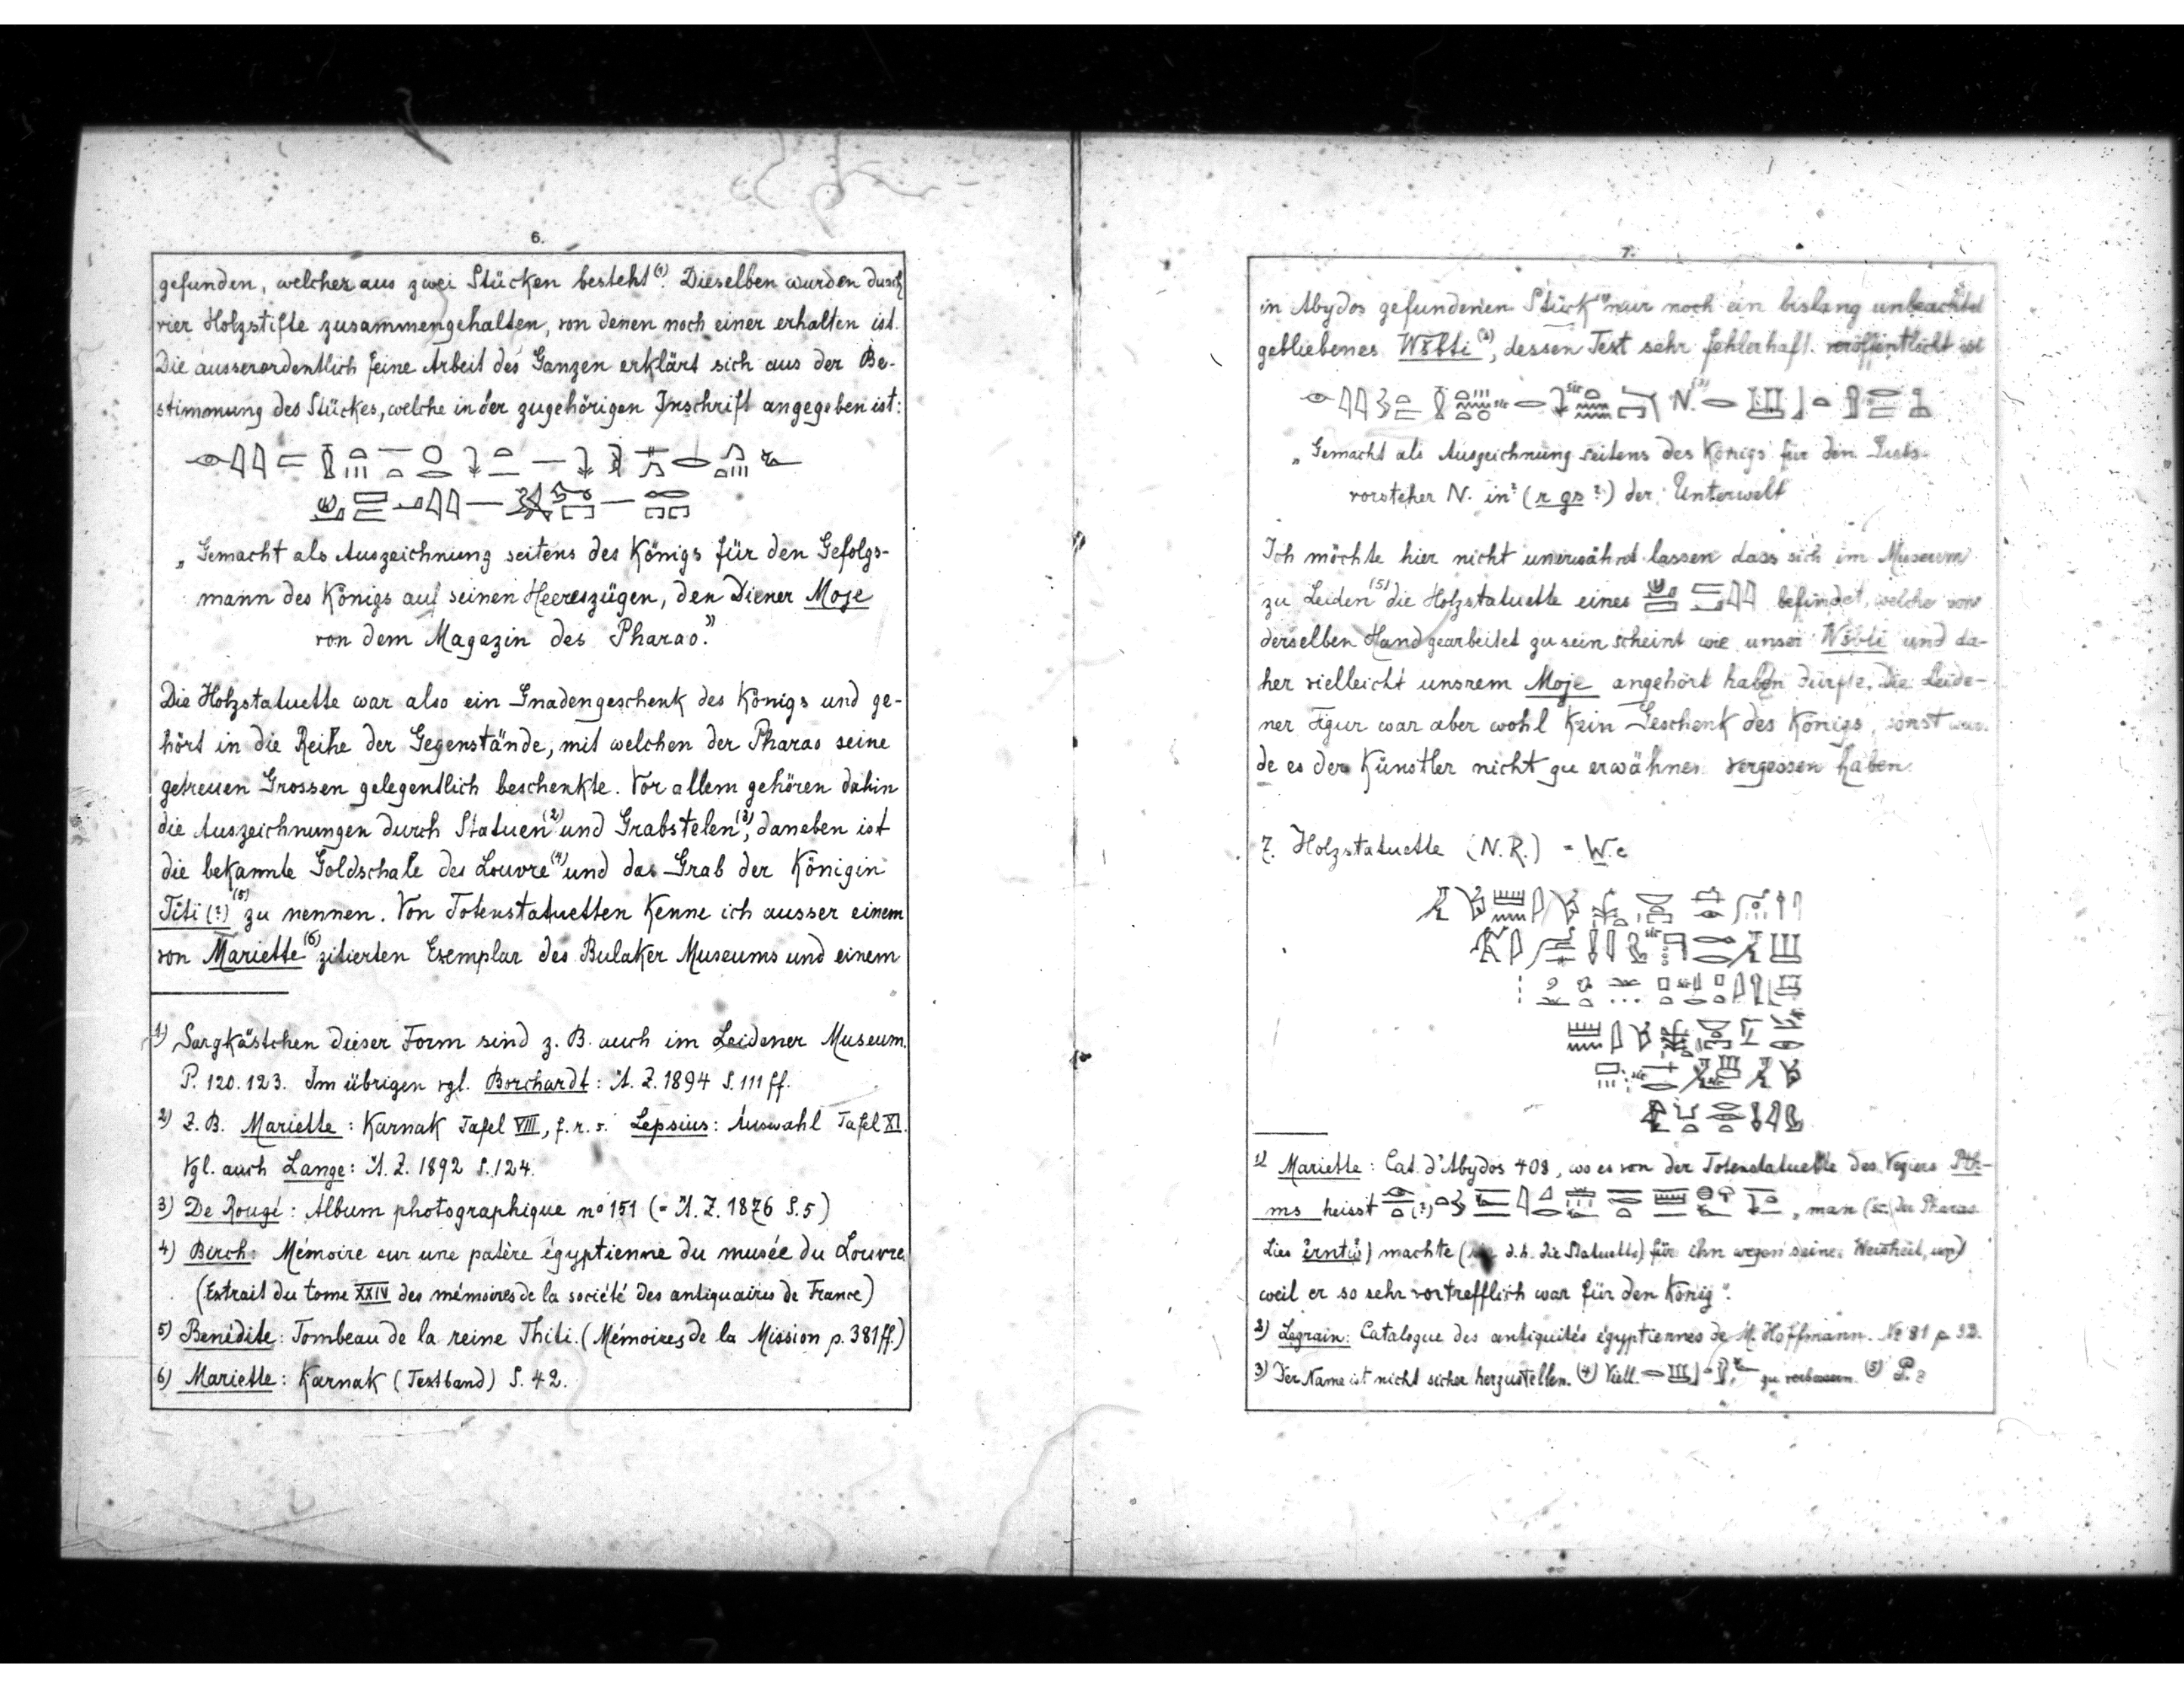 6.
gefunden, welcher aus zwei Stücken besteht (1). Dieselben wurden durch
vier Holzstifte zusammengehalten, von denen noch einer erhalten ist.
Die ausserordentlich feine Arbeit des Ganzen erklärt sich aus der Be-
stimmung des Stückes, welche in der zugehörigen Inschrift angegeben ist:
„Gemacht als Auszeichnung seitens des Königs für den Gefolgs-
mann des Königs auf seinen Heereszügen, den Diener Moje
von dem Magazin des Pharao."
Die Holzstatuette war also ein Gnadengeschenk des Königs und ge-
hört in die Reihe der Gegenstände, mit welchen der Pharao seine
getreuen Grossen gelegentlich beschenkte. Vor allem gehören dahin
die Auszeichnungen durch Statuen (2) und Grabstelen (3), daneben ist
die bekannte Goldschale des Louvre (4) und das Grab der Königin
Titi (?) (5) zu nennen. Von Totenstatuetten kenne ich ausser einem
von Mariette (6) zitierten Exemplar des Bulaker Museums und einem
1) Sargkästchen dieser Form sind z. B. auch im Leidener Museum.
P. 120. 123. Im übrigen vgl. Borchardt: Ä. Z. 1894 S. 111 ff.
2) Z. B. Mariette: Karnak Tafel VIII, f. r. s. Lepsius: Auswahl Tafel XI.
Vgl. auch Lange: Ä. Z. 1892 S. 124.
3) De Rougé: Album photographique no 151 (= Ä. Z. 1876 S. 5)
4) Birch: Mémoire sur une patère égyptienne du musée du Louvre
(Extrait du tome XXIV des mémoires de la société des antiquaires de France)
5) Benédite: Tombeau de la reine Thiti. (Mémoires de la Mission p. 381 ff.)
6) Mariette: Karnak (Textband) S. 42.
7.
in Abydos gefundenen Stück (1) nur noch ein bislang unbeachtet
gebliebenes Wšbti (2), dessen Text sehr fehlerhaft veröffentlicht ist
„Gemacht als Auszeichnung seitens des Königs für den
vorsteher N. in? (r gs?) der Unterwelt
Ich möchte hier nicht unerwähnt lassen dass sich im Museum
zu Leiden (5) die Holzstatuette eines befindet, welche von
derselben Hand gearbeitet zu sein scheint wie unser Wšbti und da-
her vielleicht unsrem Moje angehört haben dürfte. Die Leide-
ner Figur war aber wohl kein Geschenk des Königs, sonst wür-
de es der Künstler nicht zu erwähnen vergessen haben.
7. Holzstatuette (N.R.) = W.c
1) Mariette: Cat. d'Abydos 408, wo es von der Totenstatuette des Veziers Pth-
ms heisst „man (sc. der Pharao
Lies ) machte ( d.h. die Statuette) für ihn wegen seiner Weisheit, und
weil er so sehr vortrefflich war für den König".
2) Legrain: Catalogue des antiquités égyptiennes de M. Hoffmann. No 81 p
3) Der Name ist nicht sicher herzustellen. (4) Viell. zu verbessern. (5) P.